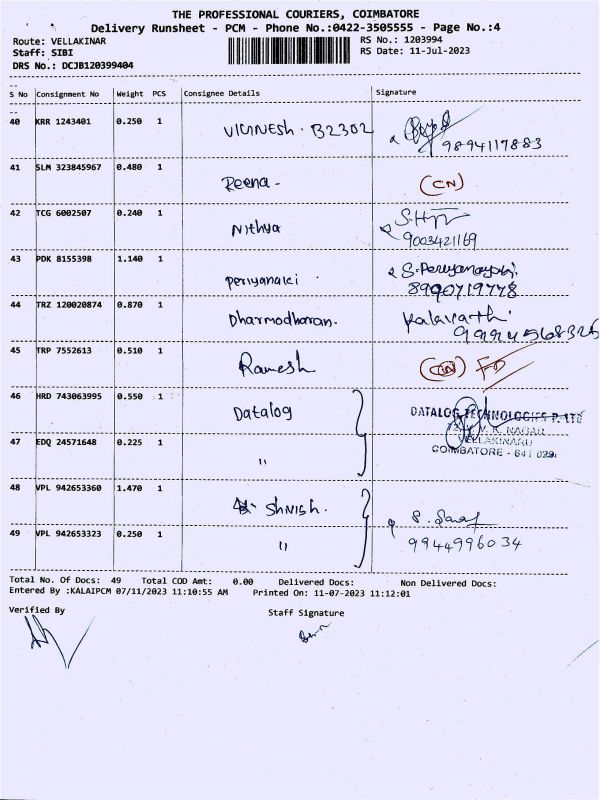 THE PROFESSIONAL COURIERS, COIMBATORE
Delivery Runsheet - PCM - Phone No.:0422-3505555 - Page No.:4
Route: VELLAKINAR RS No.: 1203994
Staff: SIBI RS Date: 11-Jul-2023
DRS No.: DCJB120399404
S No Consignment No Weight PCS Consignee Details Signature
40 KRR 1243401 0.250 1 VIGNESH. B2302
9894117883
41 SLM 323845967 0.480 1 Reena - (CN)
42 TCG 6002507 0.240 1 Nithya
9003421169
43 PDK 8155398 1.140 1 periyanaici S.Periyanayaki
8990719778
44 TRZ 120020874 0.870 1 Dharmodharan. Kalavathi
9994568325
45 TRP 7552613 0.510 1 Ramesh (CN)
46 HRD 743063995 0.550 1 Datalog DATALOG TECHNOLOGIES P. LTD
V. K. NAGAR
47 EDQ 24571648 0.225 1 " VELLAKINARU
COIMBATORE - 641 029.
48 VPL 942653360 1.470 1 Shnish.
49 VPL 942653323 0.250 1 " 9944996034
Total No. Of Docs: 49 Total COD Amt: 0.00 Delivered Docs: Non Delivered Docs:
Entered By :KALAIPCM 07/11/2023 11:10:55 AM Printed On: 11-07-2023 11:12:01
Verified By Staff Signature